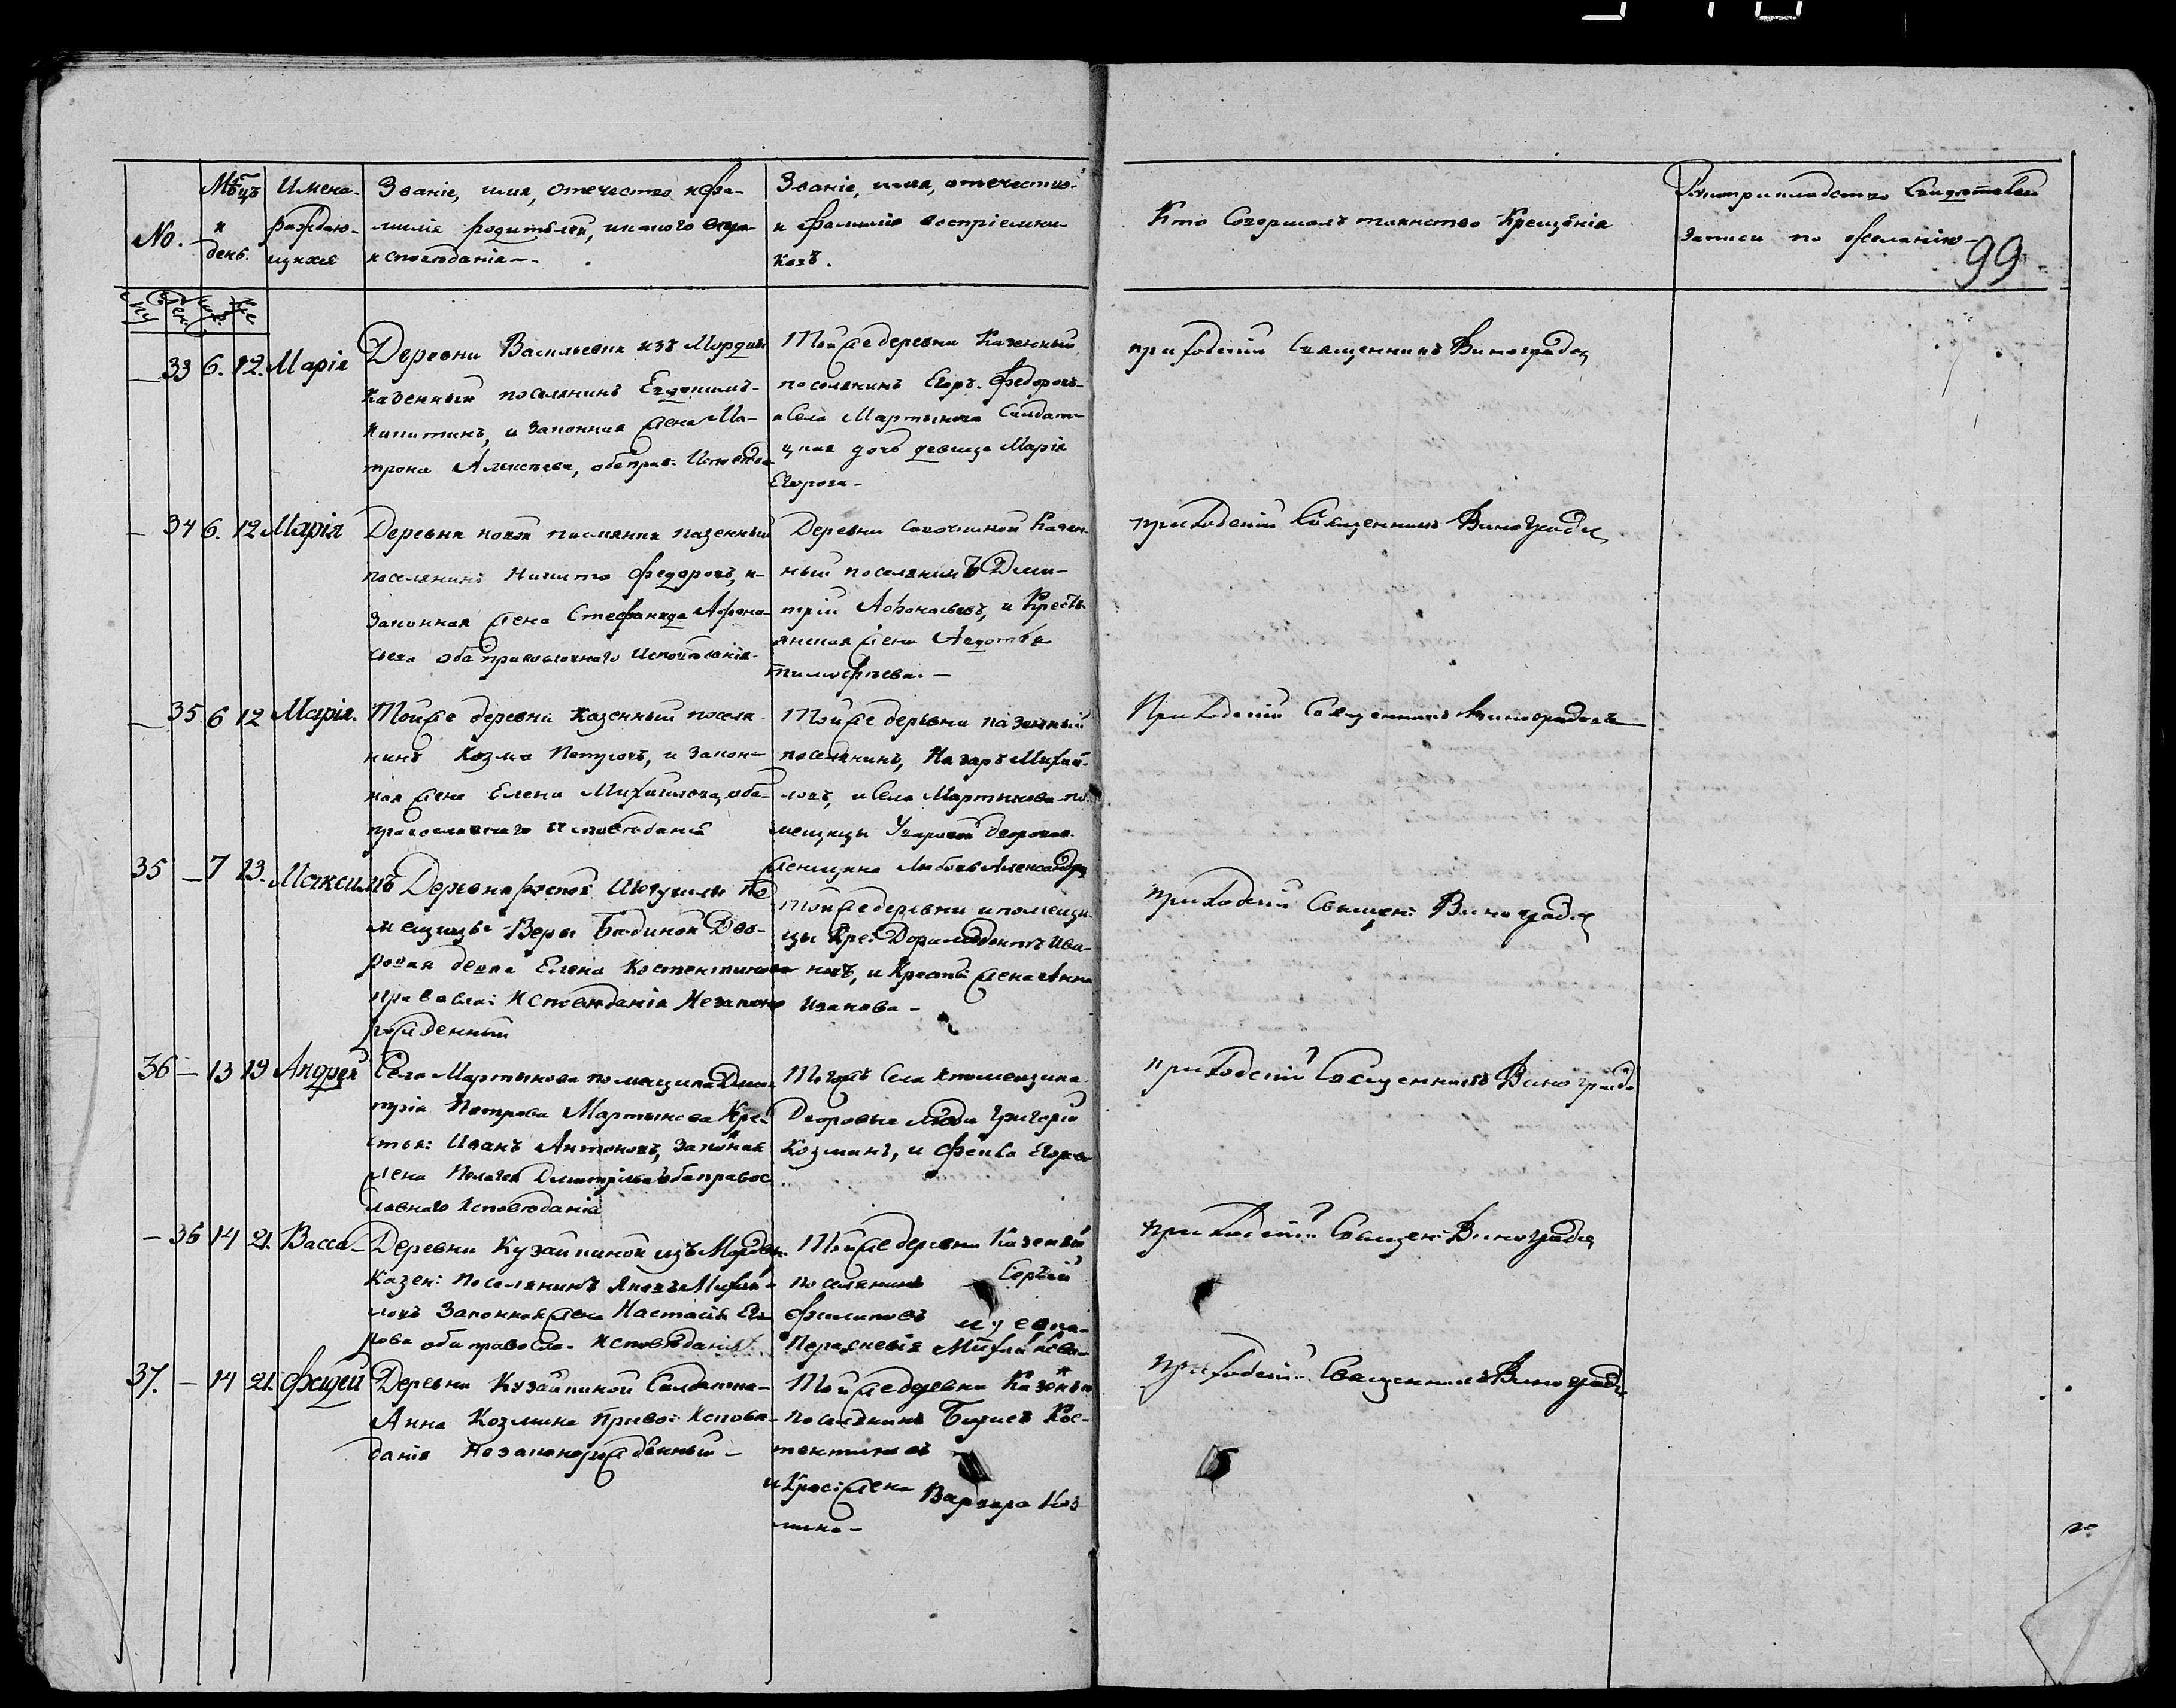 No.
Мѣцъ
и
день.
Имена
раждаю-
щихся
Званіе, имя, отечество и фа-
милія родителей, и какого
исповѣданія
Званіе, имя, отечество
и фамилія воспріемни-
ковъ.
Кто Совершалъ таинство Крещенія
записи по желанію
99
33 6. 12. Марія
Деревни Васильевки изъ Мордвы
казенный поселянинъ Евдокимъ
Никитинъ, и законная жена Ма-
трона Алексѣева, оба прав: Исповѣд
Тойже деревни Казенный
поселянинъ Егоръ Федоровъ
и Села Мартынова Салдат-
цкая дочь девица Марія
Егорова
приходскій Священникъ Виноградов
— 34 6. 12 Марія
Деревни новой писмянки казенный
поселянинъ Никита Федоровъ, и
законная жена Стефанида Афона-
сьева оба православнаго Исповѣданія
Деревни Казен-
ный поселянинъ Дми-
трій Афонасьевъ, и Кресть-
янская жена Авдотья
тимофѣева.—
приходскій Священникъ Виноградов
— 35 6 12 Марія.
Тойже деревни казенный поселя-
нинъ Козма Петровъ, и закон-
ная жена Елена Михаилова, оба
православнаго исповѣданія
Тойже деревни казенный
поселянинъ, Назаръ Михай-
ловъ, и Села Мартынова по-
мещицы Уваровой дворовая
женщина Любовь Александро
Приходскій Священникъ Виноградовъ
35 — 7 13. Максимъ
Деревни по
мещицы Веры Бюдиной Дво-
ровая девка Елена Костентинова
правосла: Исповѣданія Незаконо
рожденный
Тойже деревни и помещи-
цы Кре: Доримедонтъ Ива-
новъ, и Крестья: жена Анна
Иванова —
приходскій Священ: Виноградов
36 — 13 19 Андрей
Села Мартынова помещика Дми-
трія Петрова Мартынова Кре-
стья: Иванъ Антоновъ, законная
жена Пелагея Дмитріева оба правос
лавнаго Исповѣданія
Тогожъ Села и помещика
Дворовые люди Григорій
Козминъ, и Фекла Егорова
приходскій Священникъ Виноградо
— 36 14 21. Васса
Деревни Кузайкиной изъ Мордвы
Казен: поселянинъ Яковъ Михай-
ловъ законная жена Настасія Его
рова оба правосла. Исповѣданія
Тойже деревни Казенный
поселянинъ Сергѣй
Филиповъ
Михайлова
приходскій Священ: Виноградов
37. — 14 21. Фадей
Деревни Кузайкиной Салдатка
Анна Козмина Право: Исповѣ-
данія Незаконорожденный —
Тойже деревни Казенн
поселянинъ Борисъ Кос-
тентиновъ
и Крес: жена Варвара Коз
мина —
приходскій Священникъ Виноградо